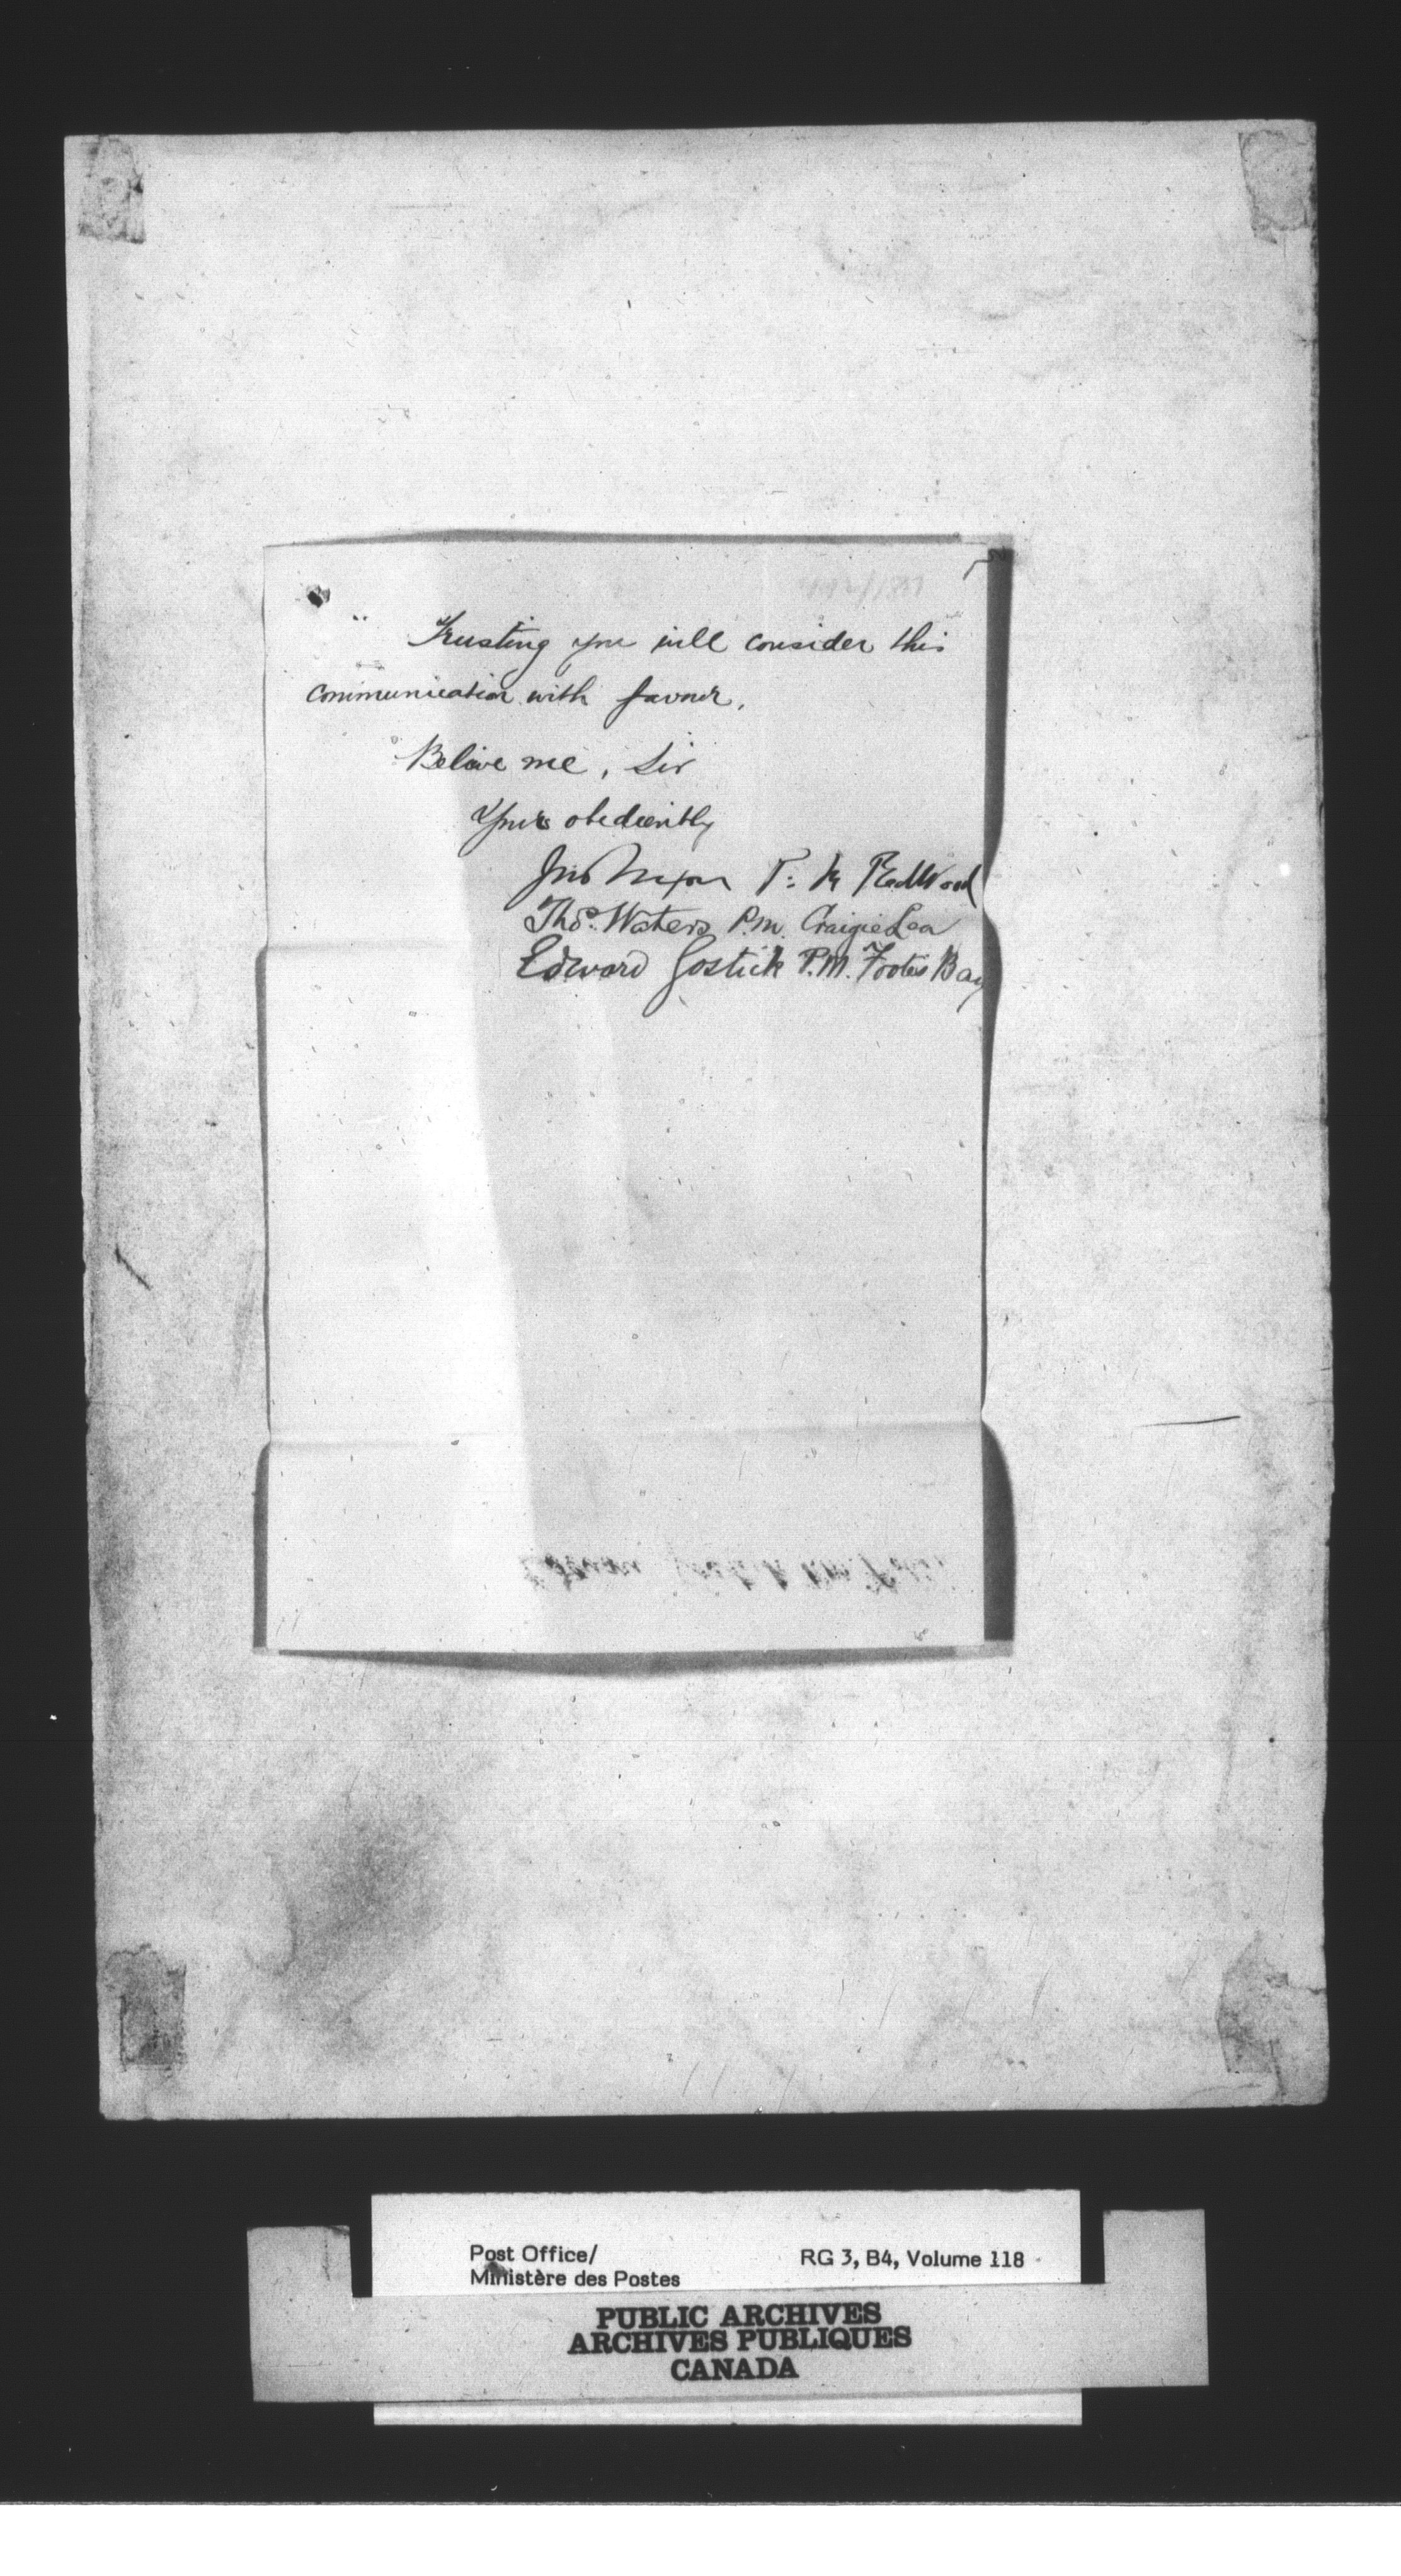 Trusting you will consider this
communication with favour.
Believe me, Sir
Yours obediently
Jno Nixon P. M Redwood
Thos. Waters P.M. Craigie Lea
Edward Gostick P.M. Footes Bay
Post Office/
Ministère des Postes
RG 3, B4, Volume 118
PUBLIC ARCHIVES
ARCHIVES PUBLIQUES
CANADA